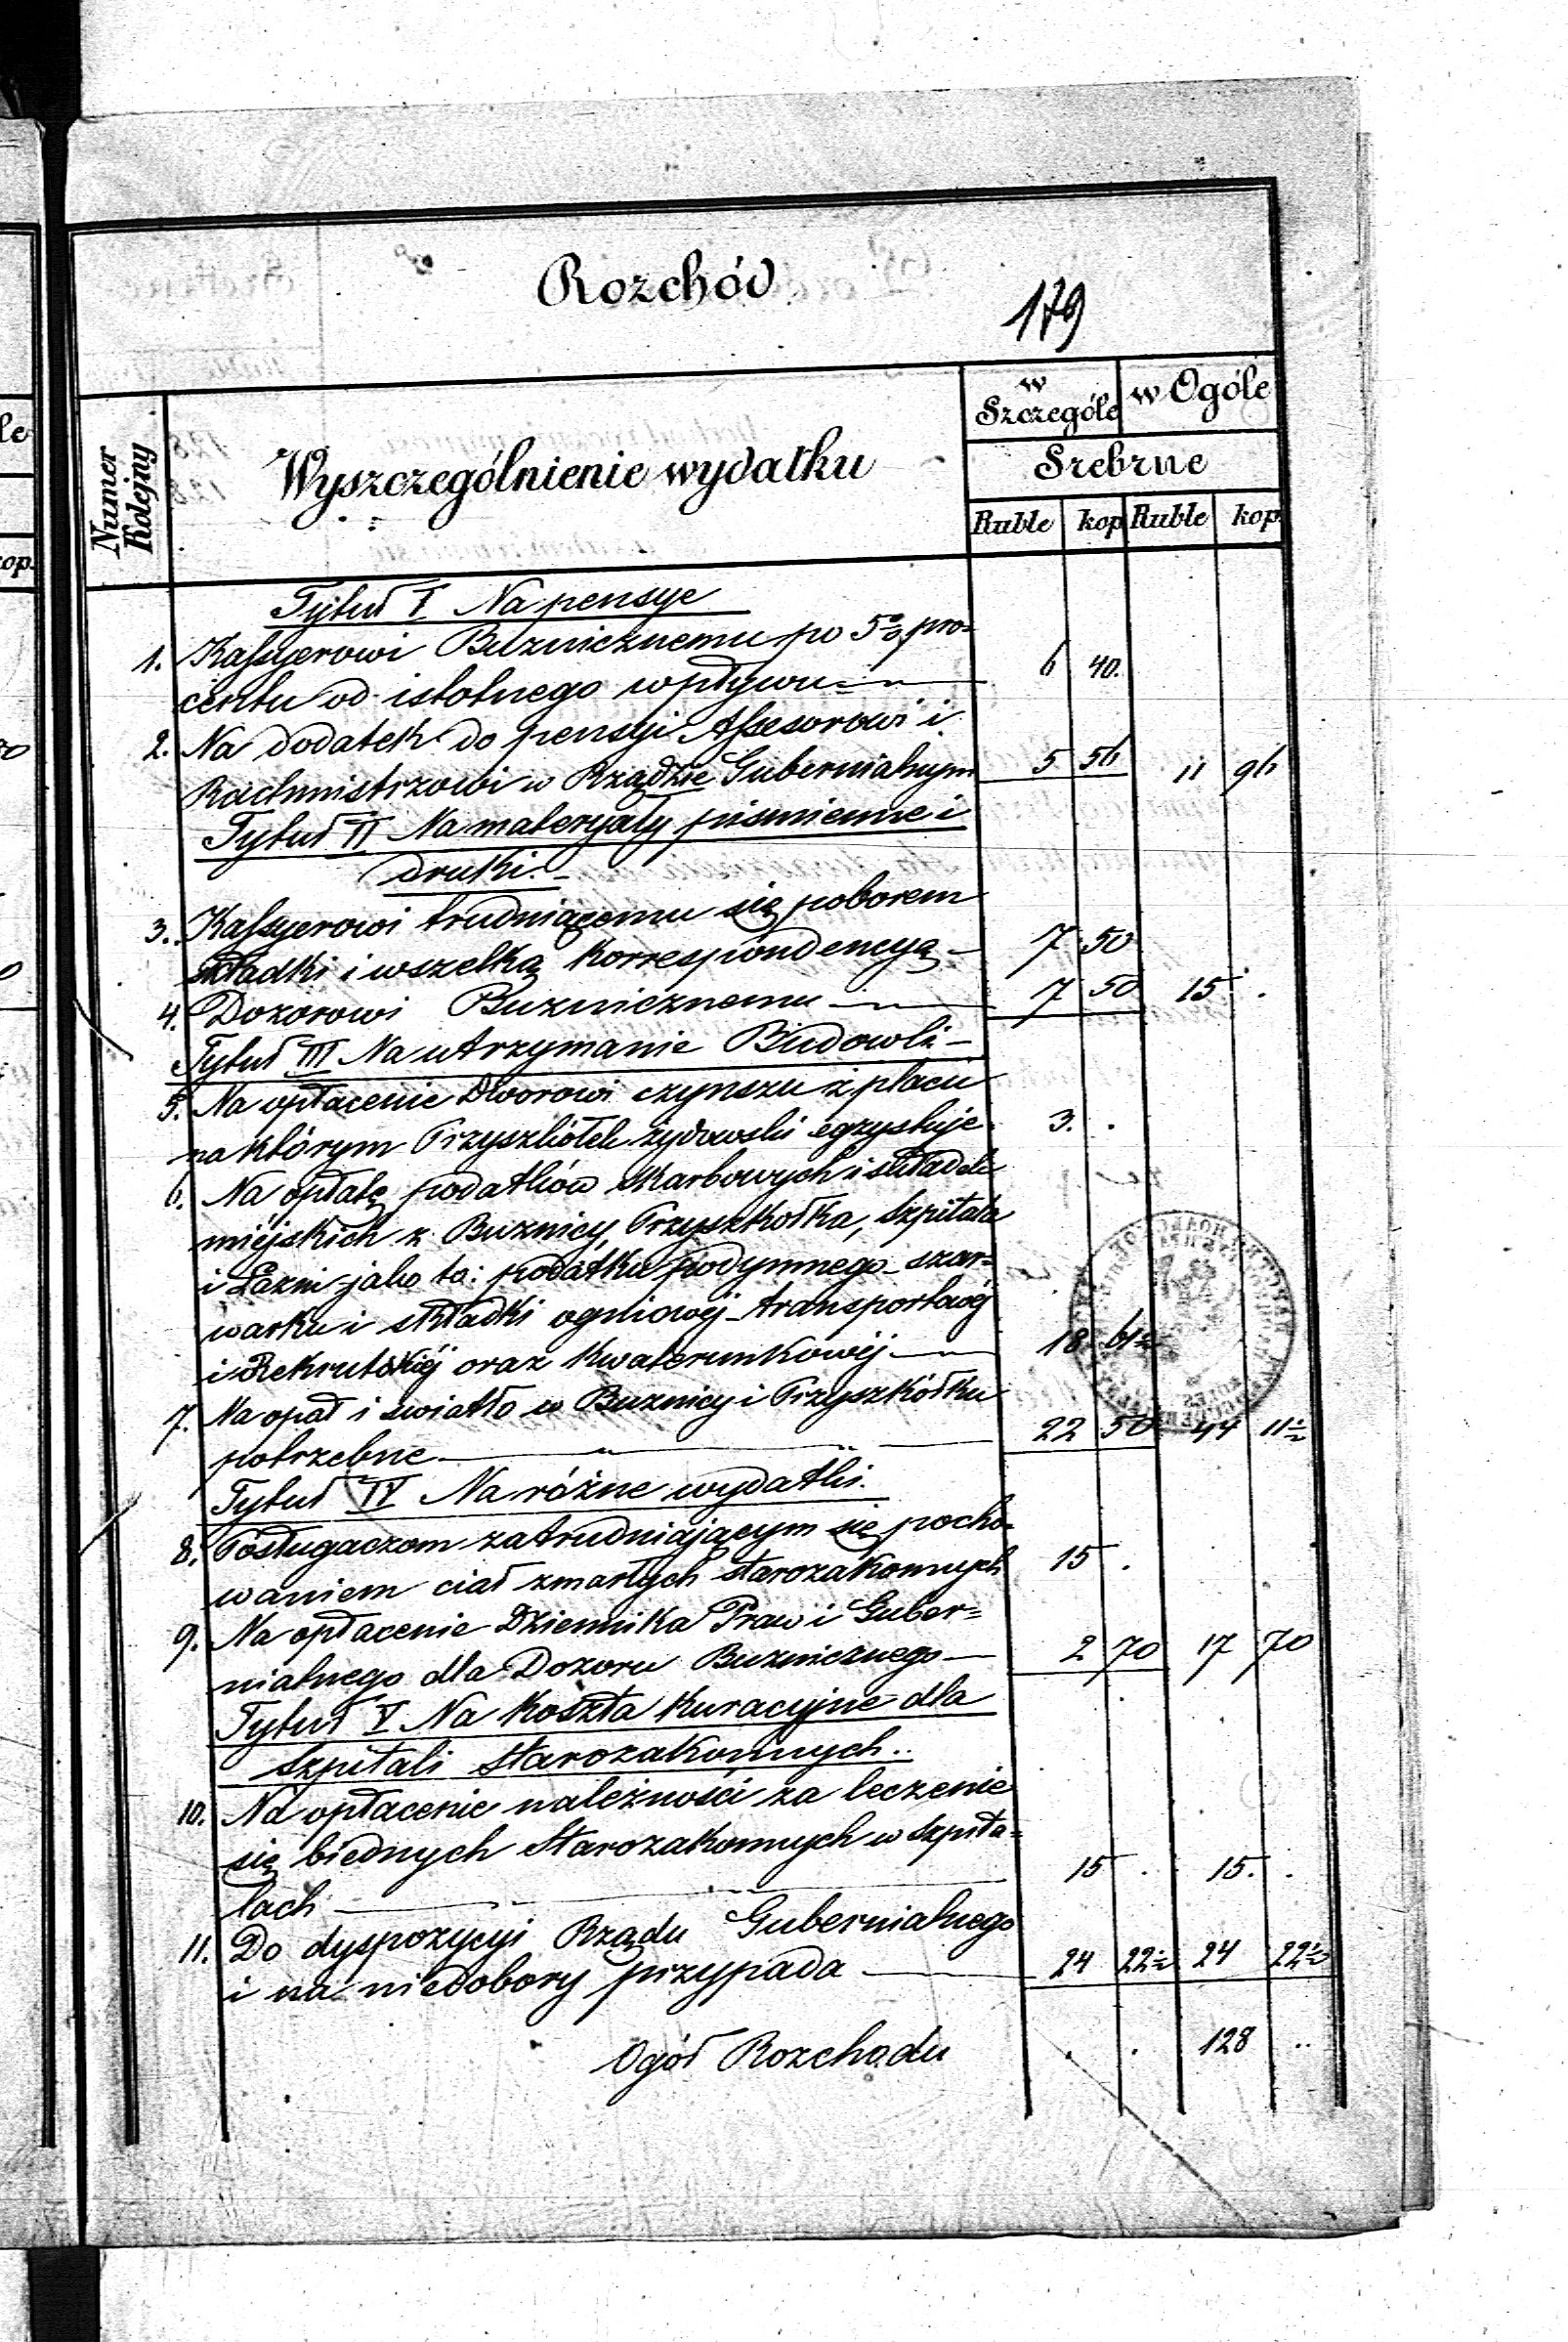 Rozchód
179
Numer Kolejny
Wyszczególnienie wydatku
w Szczególe
w Ogóle
Srebrne
Ruble kop Ruble kop.
Tytuł I Na pensye
1. Kassyerowi Buznicznemu po 5% pro=
centu od istotnego wpływu 6 40.
2. Na dodatek do pensyi Assesorowi i
Rachmistrzowi w Rządzie Gubernialnym 5 56 11 96
Tytuł II Na materyały piśmienne i
druki.
3. Kassyerowi trudniącemu się poborem
składki i wszelką korrespondencyą 7 50
4. Dozorowi Buznicznemu 7 50 15 .
Tytuł III Na utrzymanie Budowli
5. Na opłacenie Dworowi czynszu z placu
na którym Przyszkółek żydowski egzystuje 3. .
6. Na opłatę podatków skarbowych i składek
miejskich z Buznicy, Przyszkołka, Szpitala
i Łazni jako to: podatku podymnego szar=
warku i składki ogniowéj transportowéj
i Rekrutskiéj oraz kwaterunkowéj 18 61½
7. Na opał i światło w Buznicy i Przyszkółku
potrzebne 22 50 44 11½
Tytuł IV Na różne wydatki.
8. Posługaczom zatrudniającym się pocho=
waniem ciał zmarłych starozakonnych 15 .
9. Na opłacenie Dziennika Praw i Guber=
nialnego dla Dozoru Buznicznego 2 70 17 70
Tytuł V Na koszta kuracyjne dla
szpitali starozakonnych..
10. Na opłacenie należności za leczenie
się biednych Starozakonnych w szpita=
lach 15 . 15. .
11. Do dyspozycyi Rządu Gubernialnego
i na niedobory przypada 24 22½ 24 22½
Ogół Rozchodu . . 128 ..